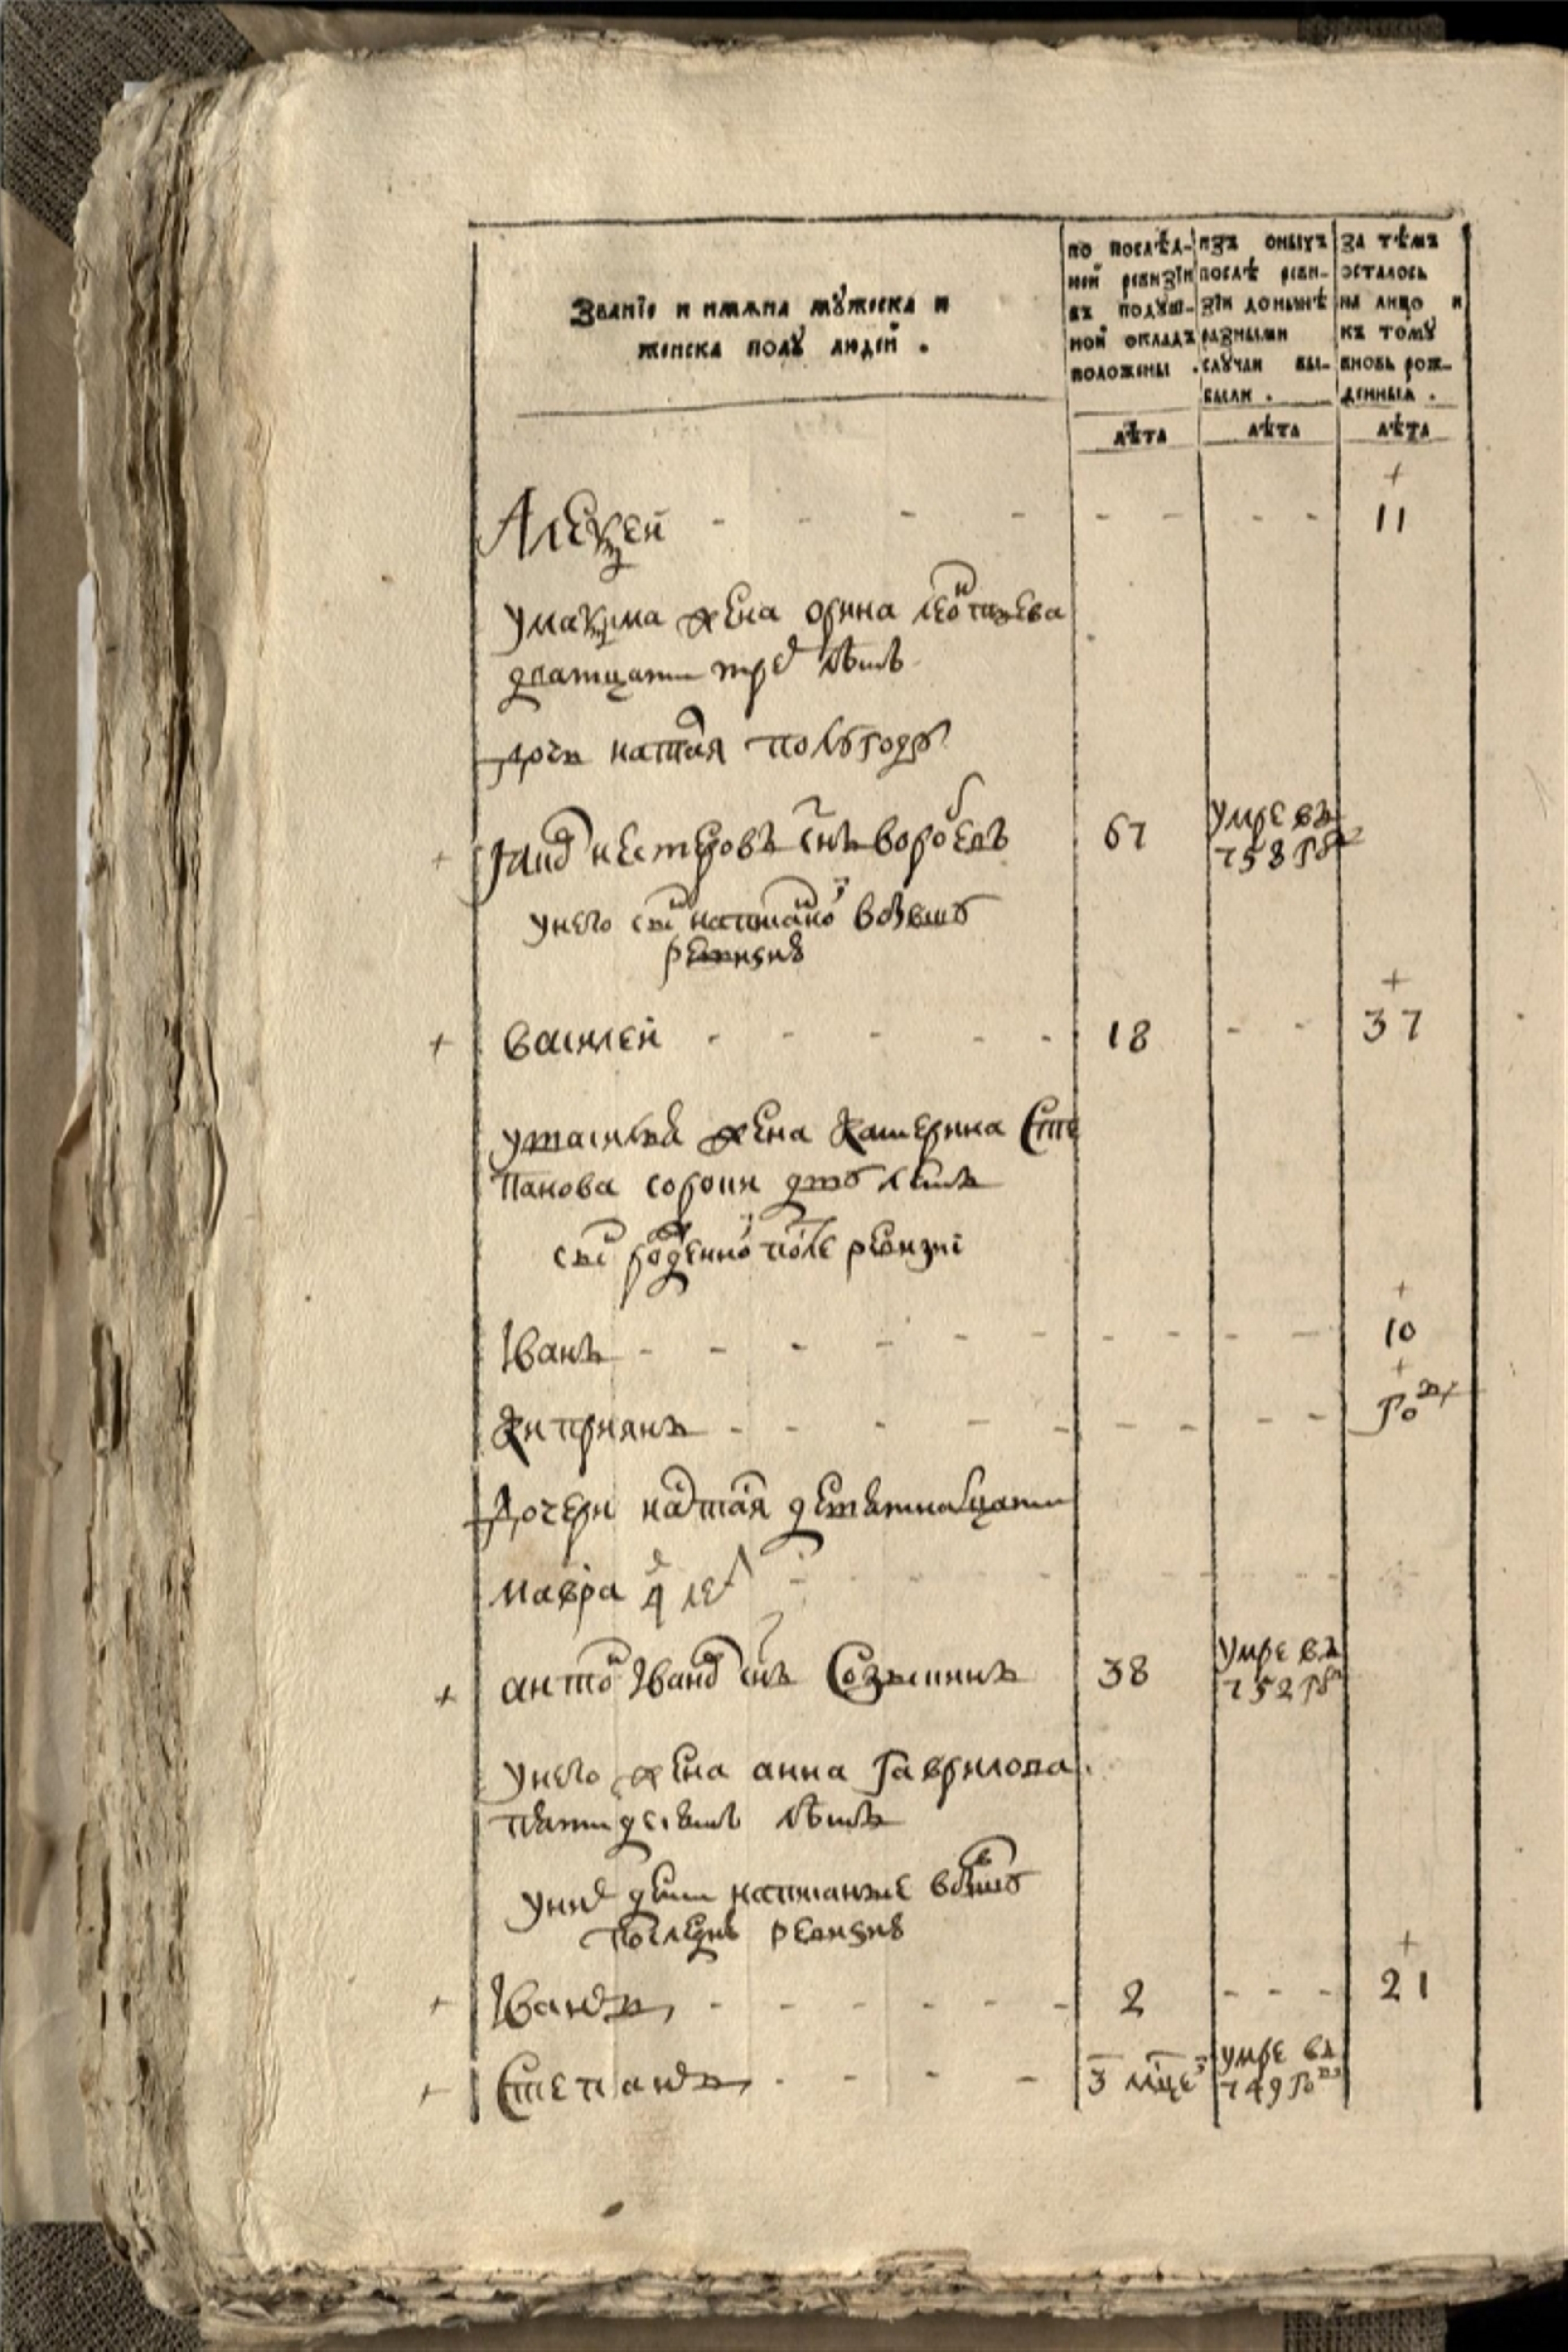 Званїе и имѧна мꙋжеска и
женска полꙋ людей .
по послѣд-
ней ревизїи
въ подꙋш-
ной окладъ
положены .
изъ оныхъ
послѣ реви-
зїи донынѣ
разными
слꙋчаи вы-
были .
за тѣмъ
осталось
на лицо и
къ томꙋ
вновь рож-
денныѧ .
лѣта
лѣта
лѣта
+
Алеѯей - - - - - - - - 11
у маѯима жена орина
дватцати трех лѣтъ
дочь наталя полугоду
+ нестеровъ снъ воробевъ 67 умре въ
758 гду
у него снъ написаной бывшеи
ревизиѣ
+
+ василей - - - - - 18 - - 37
у василья жена катерина сте
панова сорока дву лѣтъ
снъ рожденной после ревизиі
+
Іванъ - - - - - - - - - - 10
+
киприянъ - - - - - - - - - году
дочери наталя девятнатцати
мавра 4 лет
+ антон Іванов снъ Созыкинъ 38 умре въ
752 гду
у него жена анна гаврилова
пятидесятъ лѣтъ
у них дети написанные в бывшую
последнѣ ревизиѣ
+
+ Іванъ - - - - - - 2 - - - 21
+ Степанъ - - - - 3 мцев умре въ
749 году